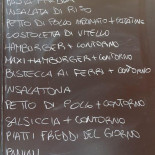 INSALATA DI RISO
PETTO DI POLLO IMPANATO + CONTORNO
COSTOLETTA DI VITELLO
HAMBURGER + CONTORNO
MAXI HAMBURGER + CONTORNO
BISTECCA AI FERRI + CONTORNO
INSALATONA
PETTO DI POLLO + CONTORNO
SALSICCIA + CONTORNO
PIATTI FREDDI DEL GIORNO
PANINI